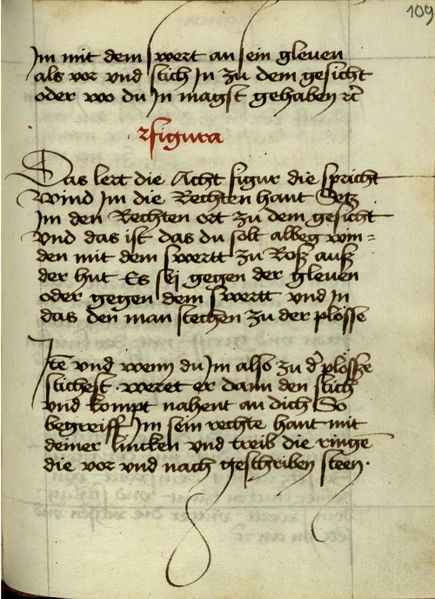 109
Im mit dem swert an sein gleuen
als vor vnd stich In zu dem gesicht
oder wo du In magst gehaben rc
figura
Das lert die Acht figur die spricht
Wind Im die Rechten hant Setz
Im den Rechten ort zu dem gesicht
vnd das ist das du solt albeg win=
den mit dem swertt zu Roß auß
der hut Es sej gegen der gleuen
oder gegen dem swertt vnd In
das den man stechen zu der plosse
Itē vnd wenn du Im also zu d' plosße
stichest . weret er dann den stich
vnd kompt nahent an dich So
begreiff Im sein rechte hant mit
deiner lincken vnd treib die ringē
die vor vnd nach geschriben steen .